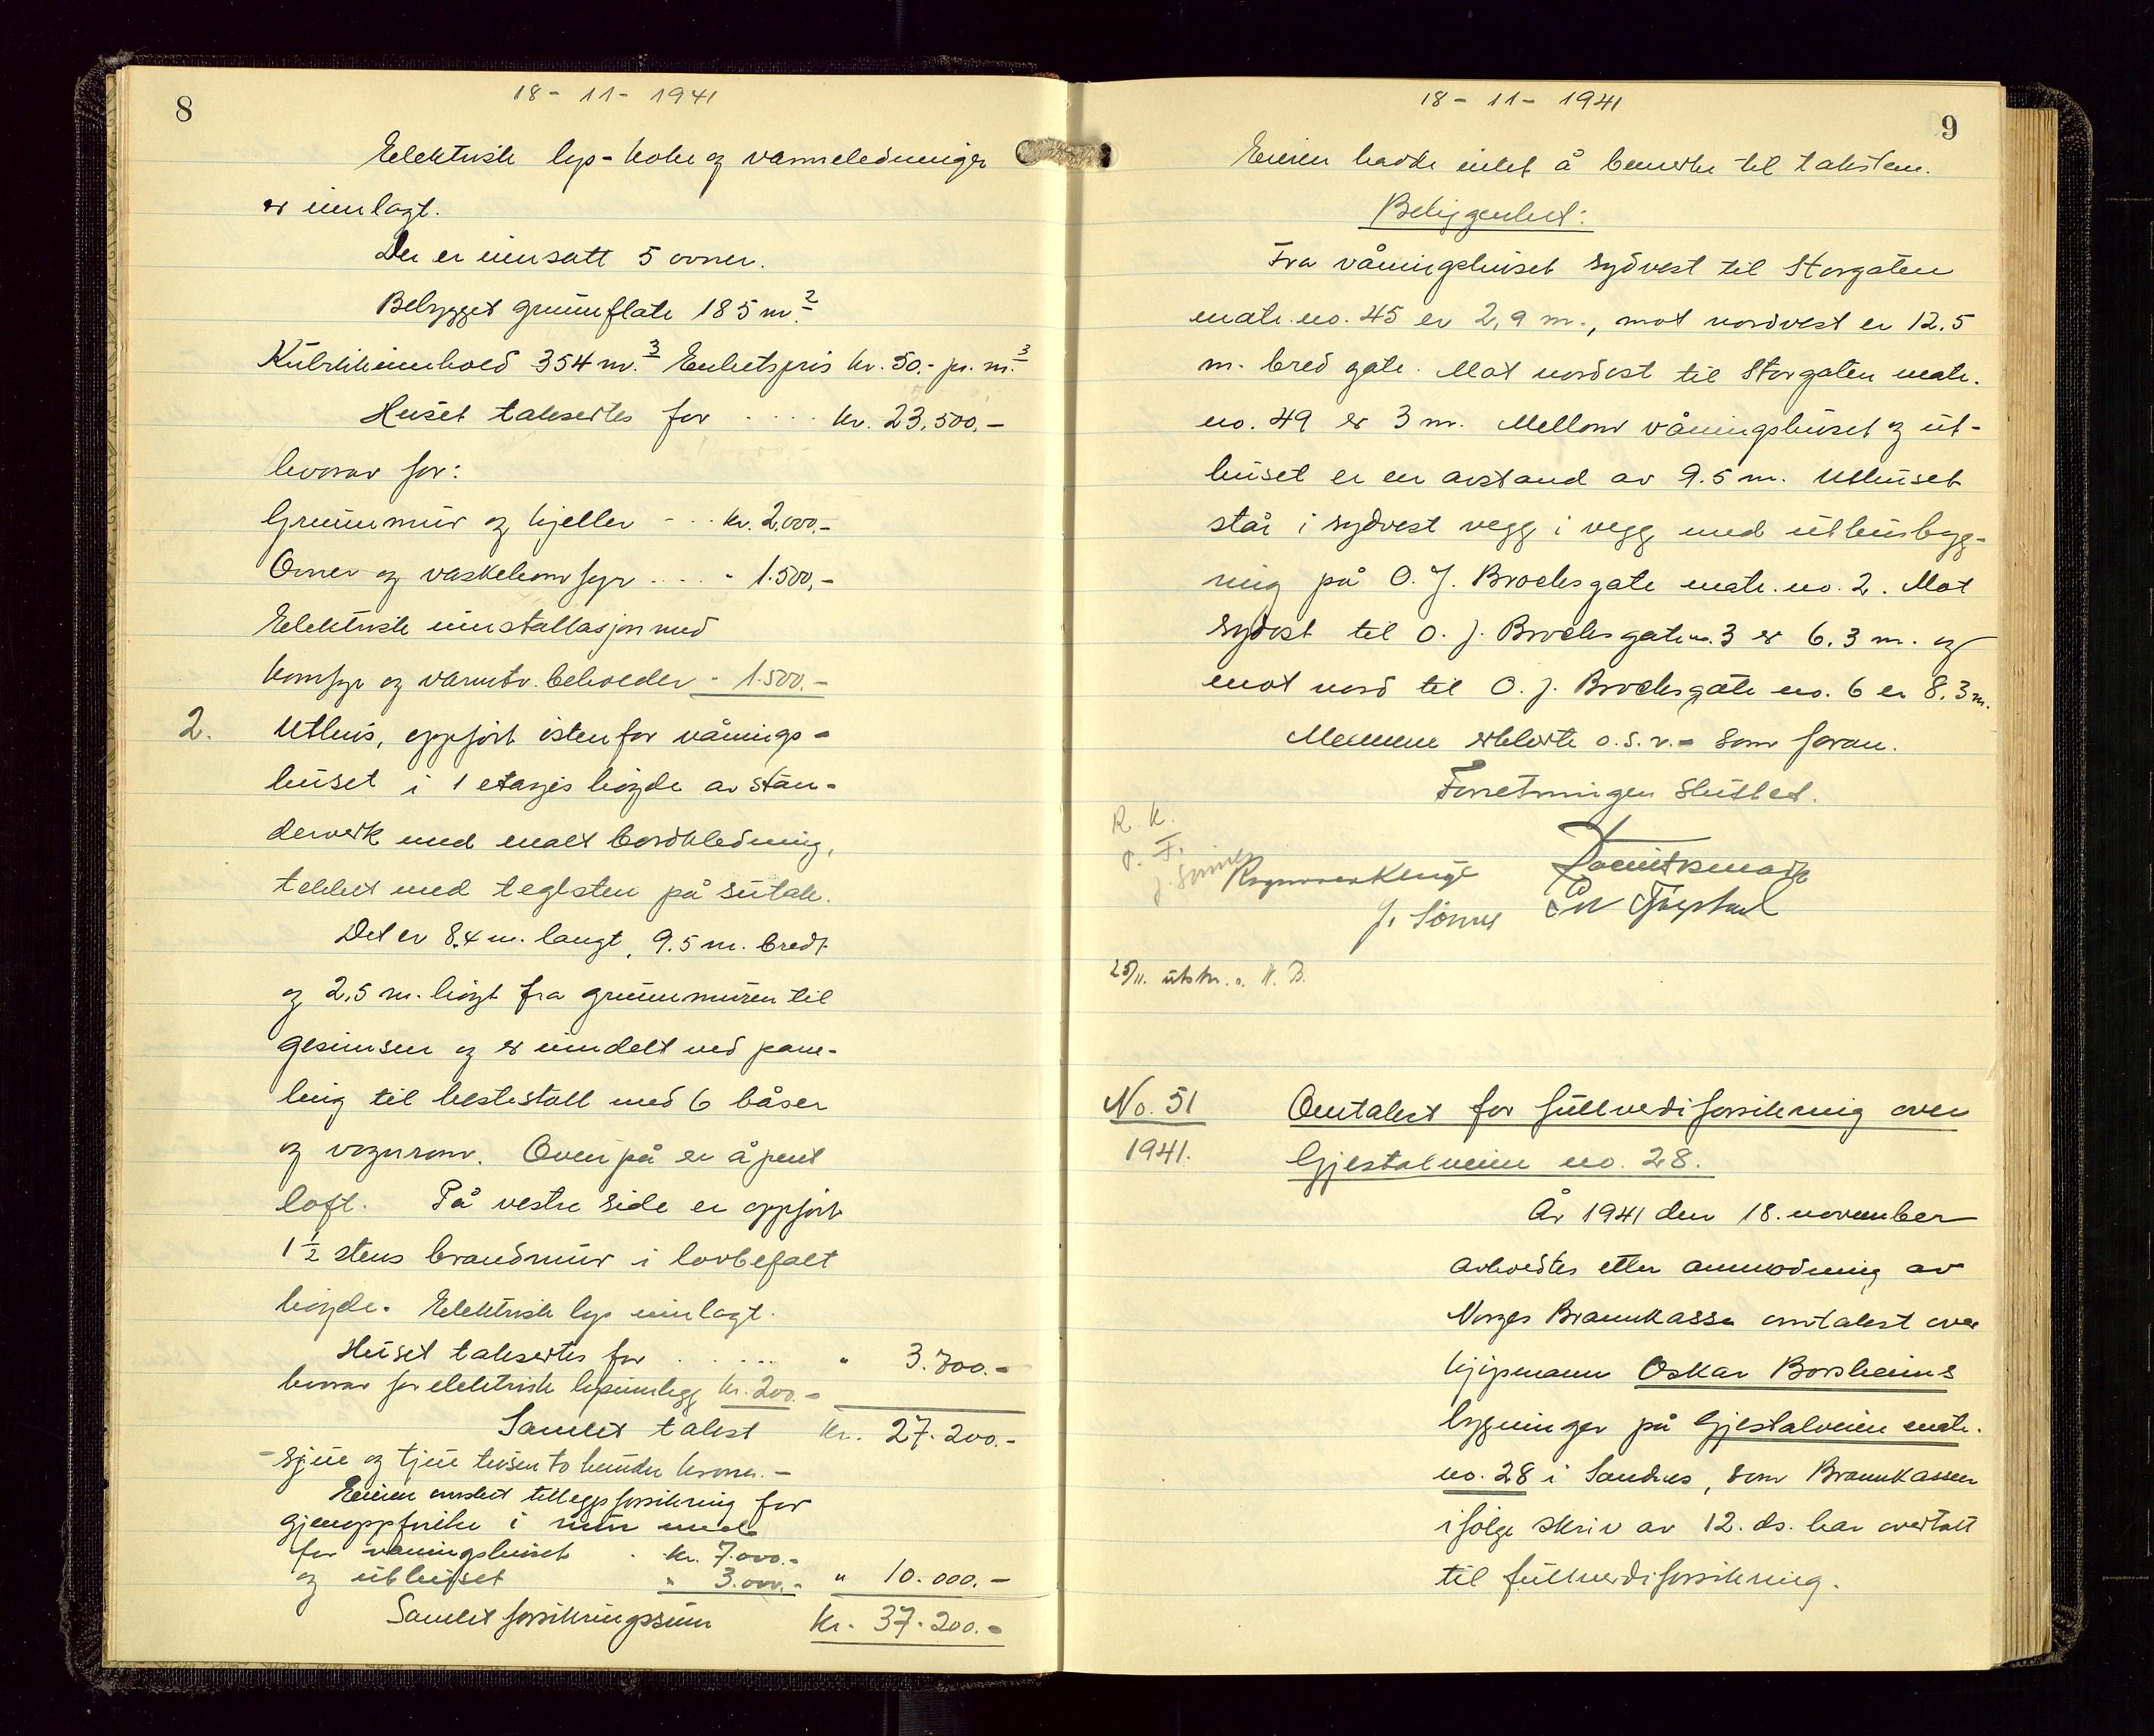 8
18 - 11 - 1941
Elektrisk lys- koke og varmeledninger
er innlagt.
Der er innsatt 5 ovner.
Bebygget grunnflate 185 m.²
Kubikkinnhold 354 m.³ Enhetspris kr. 50.- pr. m.³
Huset takseres for .... kr. 23,500.-
hvorav for:
Grunnmur og kjeller - .. kr. 2,000.-
Ovner og vaskekomfyr .... " 1.500,-
Elektrisk installasjon med
komfyr og varmtv. beholder - 1.500.-
2. Uthus, oppført østenfor vånings-
huset i 1 etasjes høyde av sten-
derverk med malt bordkledning,
tekket med teglsten på sutak.
Det er 8.4 m. langt, 9.5 m. bredt
og 2,5 m. høyt fra grunnmuren til
gesimsen og er inndelt ved pane-
ling til hestestall med 6 båser
og vognrom. Oven på er åpent
loft. På vestre side er oppført
1 ½ stens brandmur i lovbefalt
høyde. Elektrisk lys innlagt.
Huset takseres for ..... " 3.700.-
hvorav for elektrisk lysinnlegg kr. 200.-
Samlet takst kr. 27.200.-
- Sjue og tjue tusen to hundre kroner. -
Eieren ønsket tilleggsforsikring for
gjenoppførelse i mur med
for våningshuset . kr. 7.000.-
og uthuset " 3.000.- " 10.000.-
Samlet forsikringssum kr. 37.200.-
18 - 11 - 1941
9
Eieren hadde intet å bemerke til taksten.
Beliggenhet:
Fra våningshuset sydvest til Storgaten
matr. no. 45 er 2,9 m., mot nordvest er 12.5
m. bred gate. Mot nordost til Storgaten matr.
no. 49 er 3 m. Mellom våningshuset og ut-
huset er en avstand av 9.5 m. Uthuset
står i sydvest vegg i vegg med uthusbyg-
ning på O. J. Brochsgate matr. no. 2. Mot
sydost til O. J. Brochsgate no. 3 er 6.3 m. og
mot nord til O. J. Brochsgate no. 6 er 8.3 m.
Mennene erklærte o.s.v. - som foran.
Forretningen sluttet.
R. K.
J. Sømme
J. Sømme
25/11. utskr. s. N. B.
No. 51
1941.
Omtakst for fullverdiforsikring over
Gjestalveien no. 28.
År 1941 den 18. november
avholdtes etter anmodning av
Norges Brannkasse omtakst over
kjøpmann Oskar Borsheims
bygninger på Gjestalveien matr.
no. 28 i Sandnes, som Brannkassen
ifølge skriv av 12. ds. har overtatt
til fullverdiforsikring.